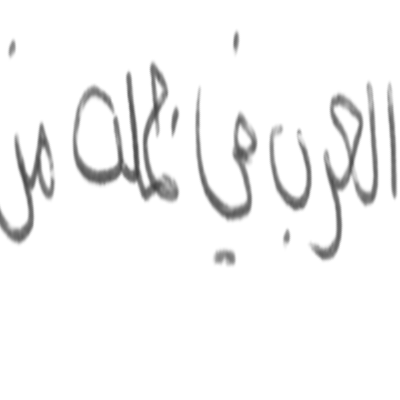 العرب في جمله من